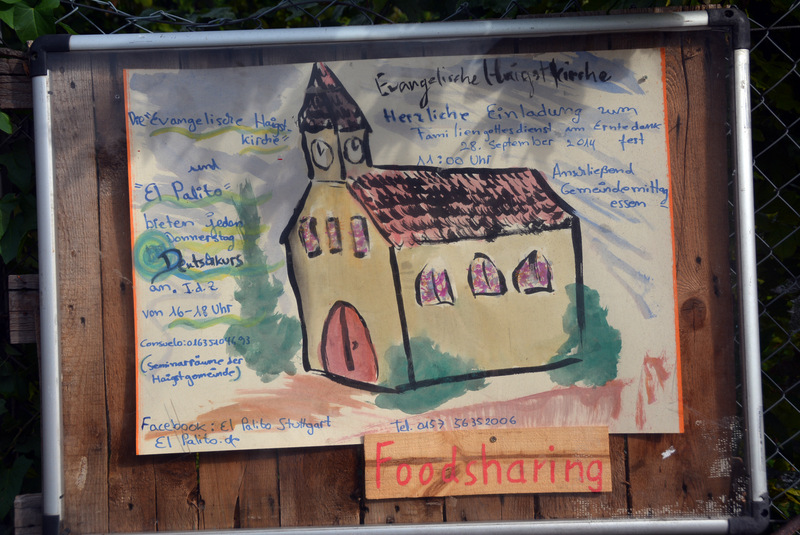 Evangelische Haigstkirche
Herzliche Einladung zum
Familiengottesdienst am Erntedank
fest
28. September 2014
11:00 Uhr
Anschließend
Gemeindemittag
essen
Die "Evangelische Haigst-
kirche"
und
"El Palito"
bieten jeden
Donnerstag
Deutschkurs
an. I.d.2
von 16-18 Uhr
Consuelo:
(Seminarräume der
Haigstgemeinde)
Facebook: El Palito Stuttgart
El Palito.de
Tel. 0157 56352006
Foodsharing